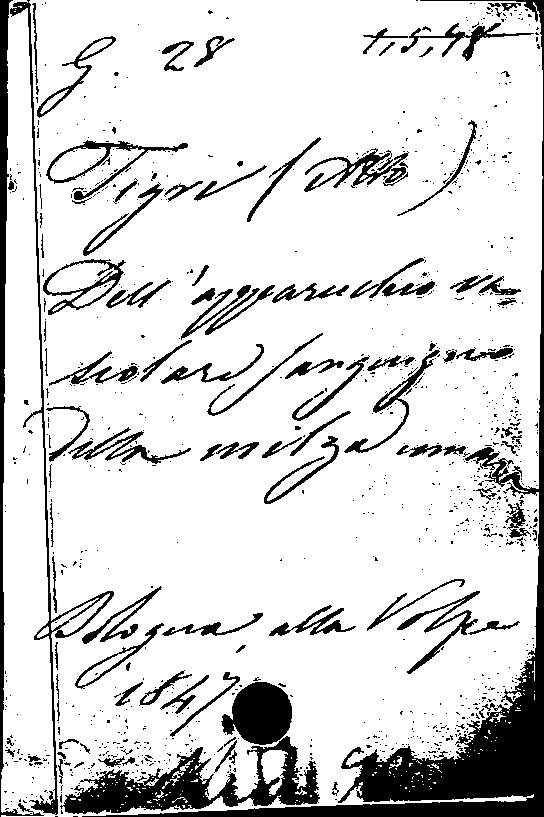 G. 28 1,5,48
Tigri (Atto)
Dell'apparecchio va-
scolare sanguigno
della milza umana
Bologna, alla Volpe
1847